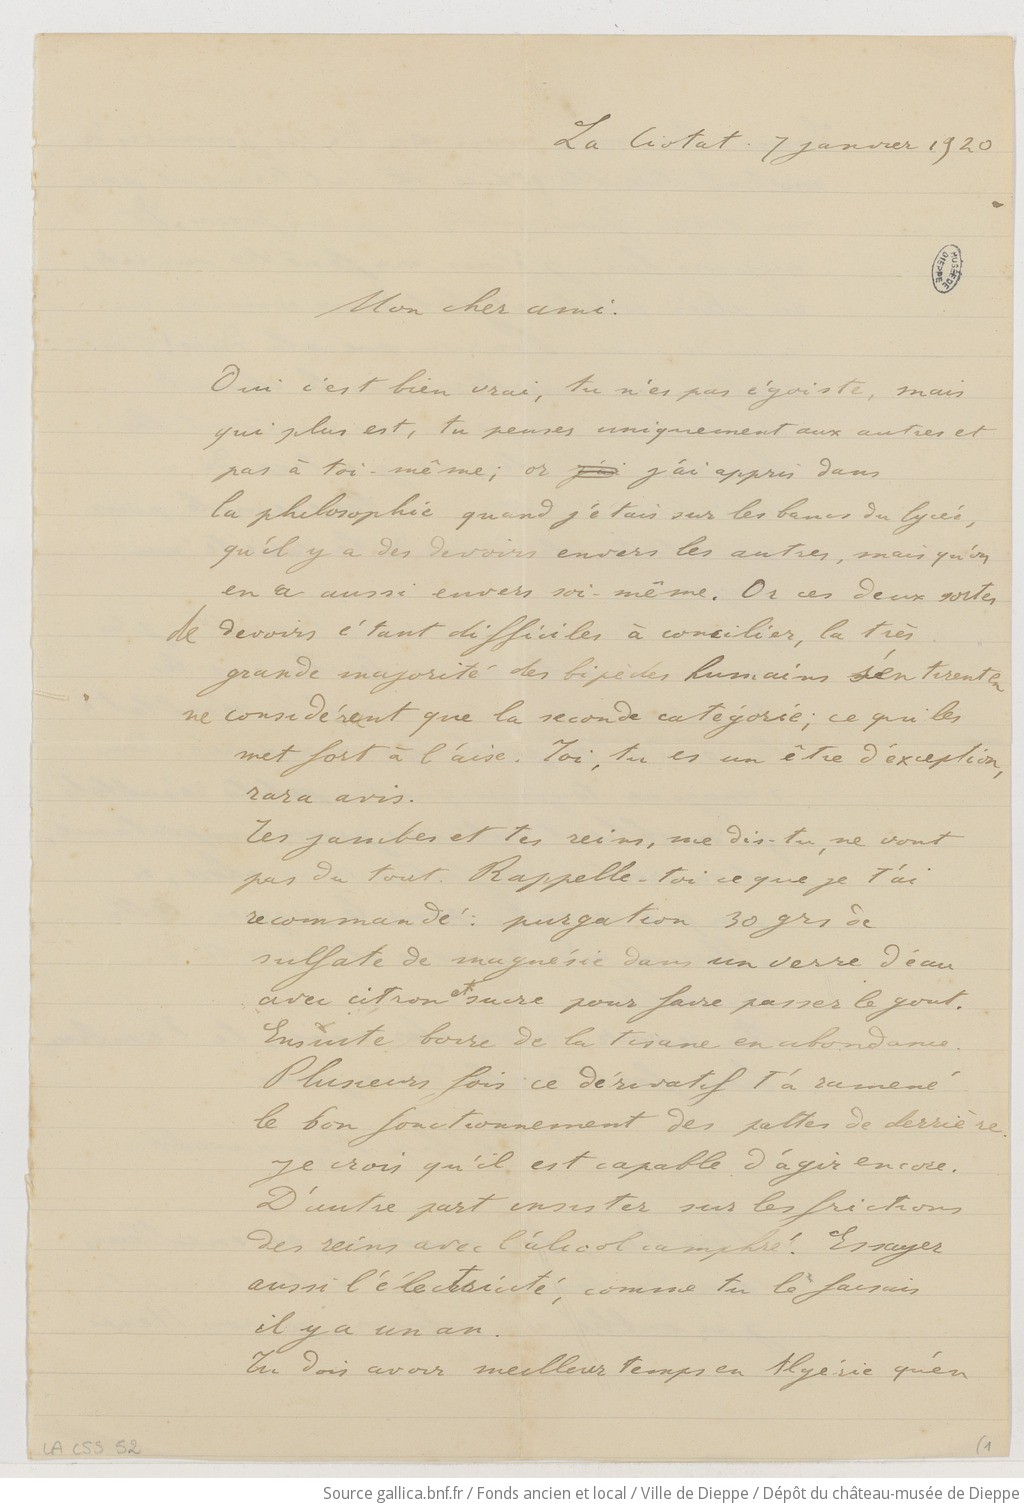 La Ciotat. 7 janvier 1920
MUSÉE DE DIEPPE
Mon cher ami.
Oui c'est bien vrai, tu n'es pas égoiste, mais
qui plus est, tu penses uniquement aux autres et
pas à toi-même; or j'ai j'ai appris dans
la philosophie quand j'étais sur les bancs du lycée,
qu'il y a des devoirs envers les autres, mais qu'on
en a aussi envers soi-même. Or ces deux sortes
de devoirs étant difficiles à concilier, la très
grande majorité des bipèdes humains s'en tirent en
ne considérant que la seconde catégorie; ce qui les
met fort à l'aise. Toi, tu es un être d'exception,
rara avis.
Tes jambes et tes reins, me dis-tu, ne vont
pas du tout. Rappelle-toi ce que je t'ai
recommandé: purgation 30 grs de
sulfate de magnésie dans un verre d'eau
avec citron et sucre pour faire passer le gout.
Ensuite boire de la tisane en abondance.
Plusieurs fois ce dérivatif t'a ramené
le bon fonctionnement des pattes de derrière.
Je crois qu'il est capable d'agir encore.
D'autre part insister sur les frictions
des reins avec l'alcool camphré. Essayer
aussi l'électricité, comme tu le faisais
il y a un an.
Tu dois avoir meilleur temps en Algérie qu'en
LA CSS 52
(1
Source gallica.bnf.fr / Fonds ancien et local / Ville de Dieppe / Dépôt du château-musée de Dieppe